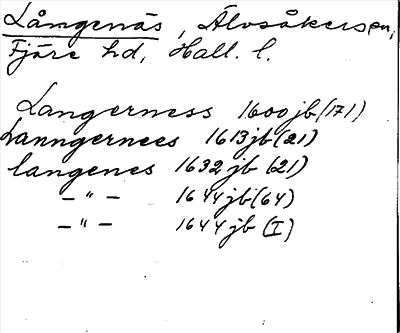 Långenäs, Älvsåkers sn,
Fjäre hd, Hall. l.
Langerness 1600 jb (171)
Lanngernees 1613 jb (21)
langenes 1632 jb (21)
- " - 1644 jb (64)
- " - 1644 jb (I)